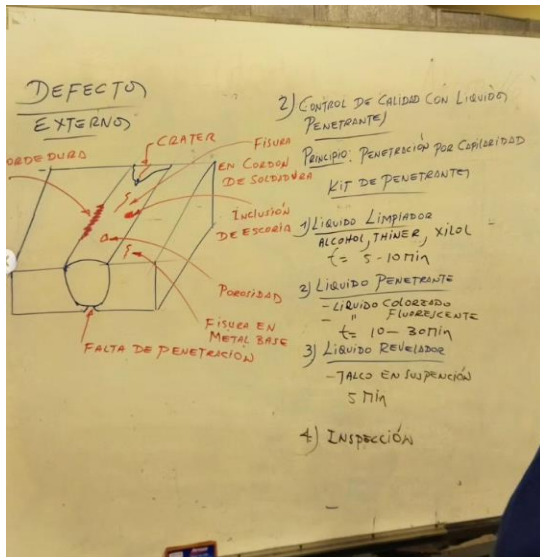 DEFECTOS
EXTERNOS
ORDEDURA
CRATER
FISURA
EN CORDON
DE SOLDADURA
INCLUSIÓN
DE ESCORIA
POROSIDAD
FISURA EN
METAL BASE
FALTA DE PENETRACION
2) CONTROL DE CALIDAD CON LIQUIDOS
PENETRANTES
PRINCIPIO: PENETRACIÓN POR CAPILARIDAD
KIT DE PENETRANTES
1) LIQUIDO LIMPIADOR
ALCOHOL, THINER, XILOL
t = 5-10 Min
2) LIQUIDO PENETRANTE
- LIQUIDO COLOREADO
- " FLUORESCENTE
t = 10 - 30 Min
3) LIQUIDO REVELADOR
- TALCO EN SUSPENCIÓN
5 Min
4) INSPECCIÓN